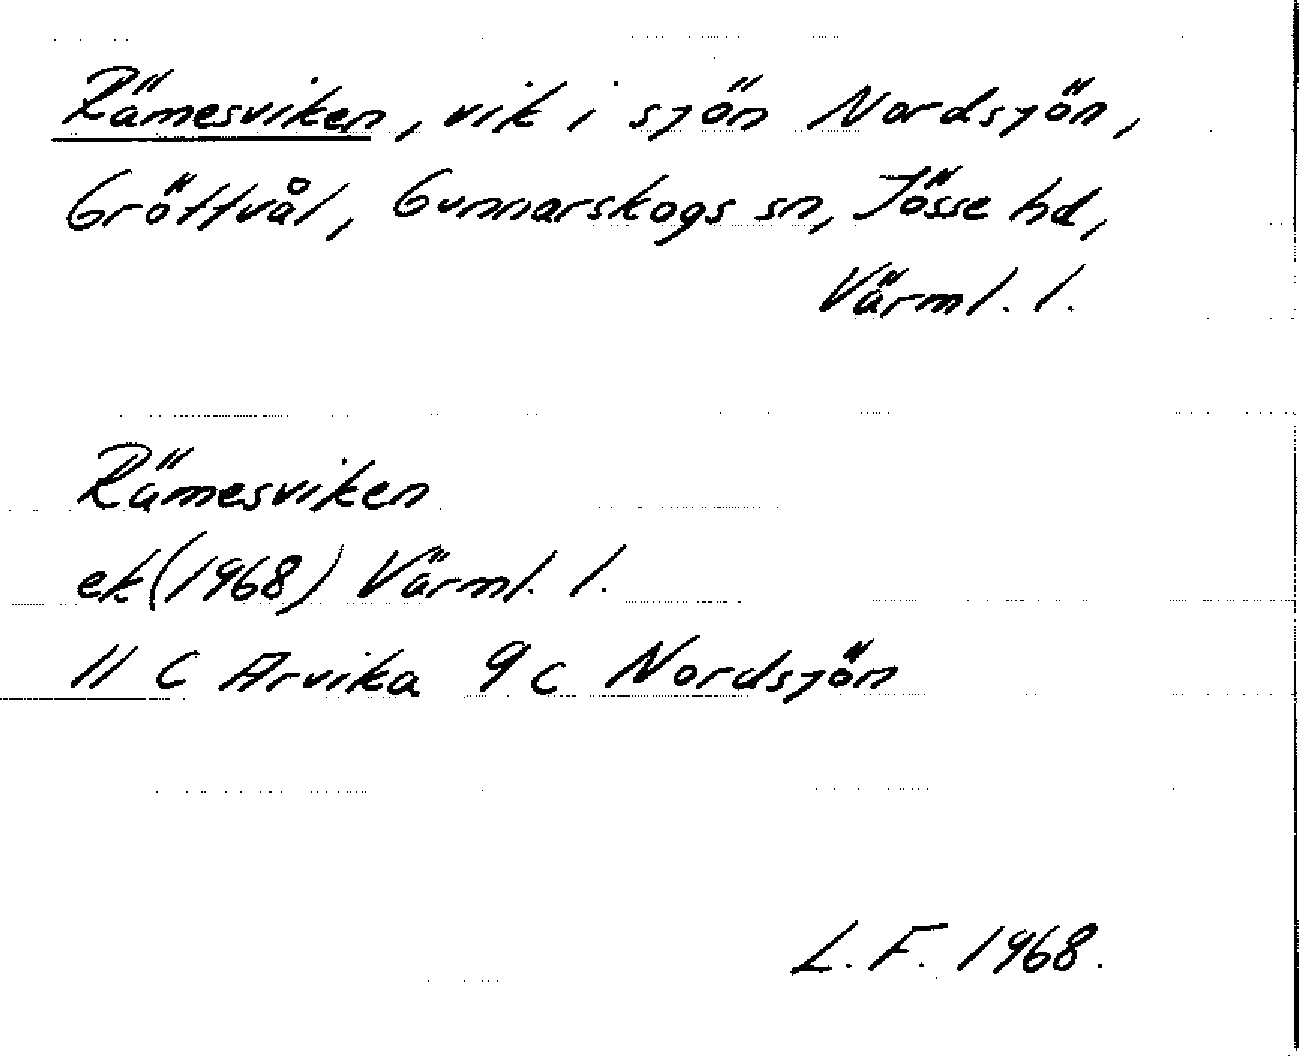 Rämesviken, vik i sjön Nordsjön,
Gröttvål, Gunnarskogs sn, Jösse hd,
Värml. l.
Rämesviken
ek (1968) Värml. l.
11 C Arvika 9 c Nordsjön
L. F. 1968.